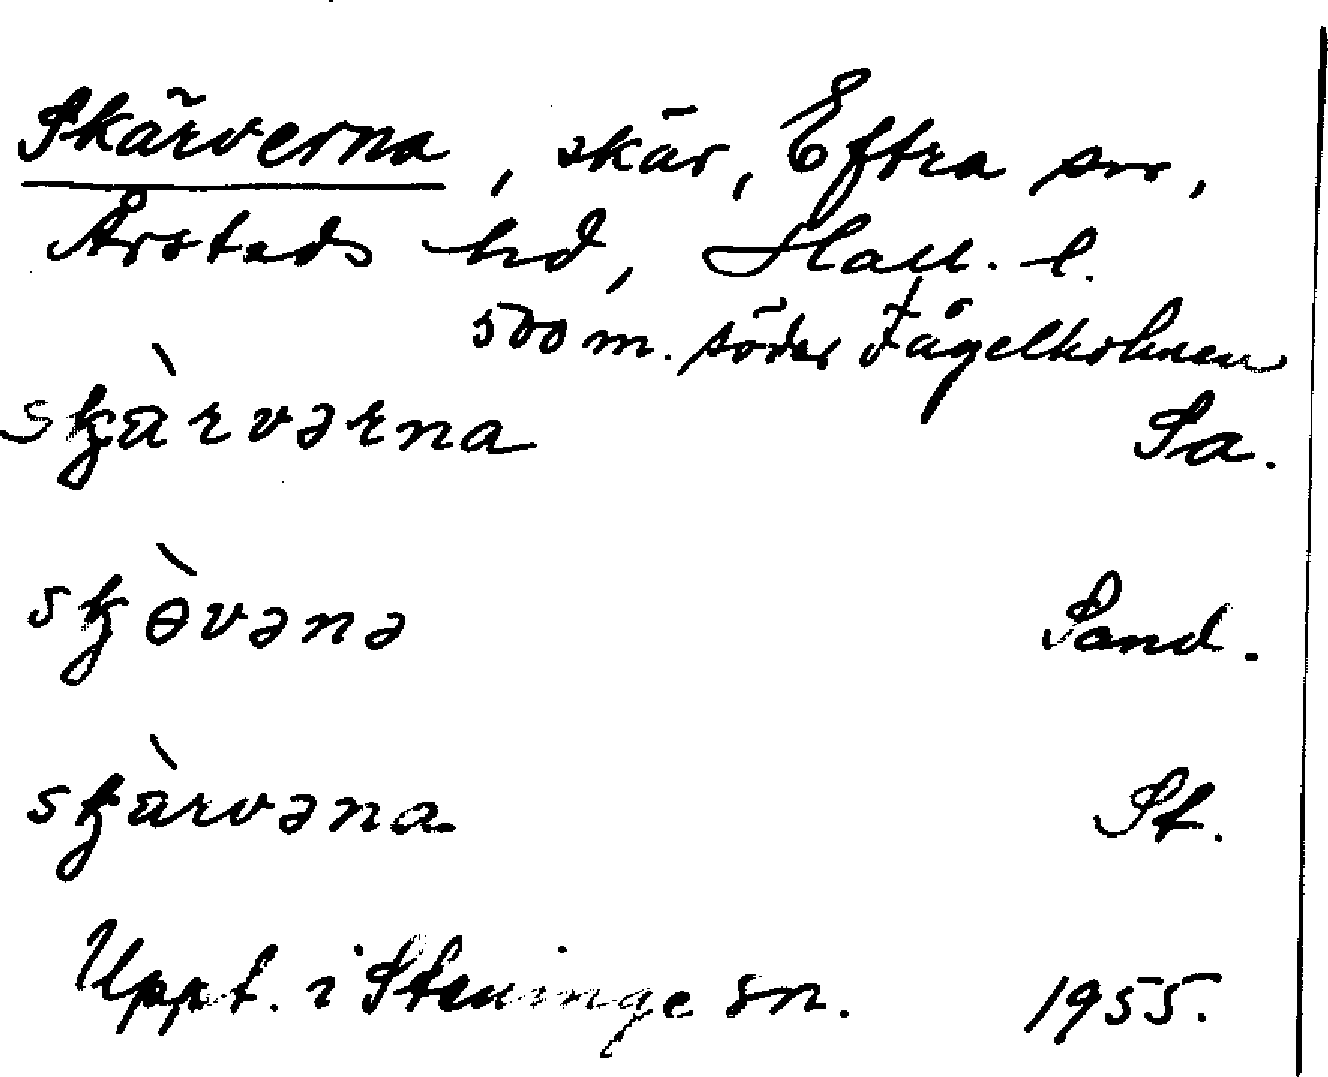 Skärverna, skär, Eftra sn,
Årstads hd, Hall. l.
500 m. söder Fågelholmen
skärvərna Sa.
skɵ̀vənə Sand.
skärvəna. St.
Uppt. i Steninge sn. 1955.